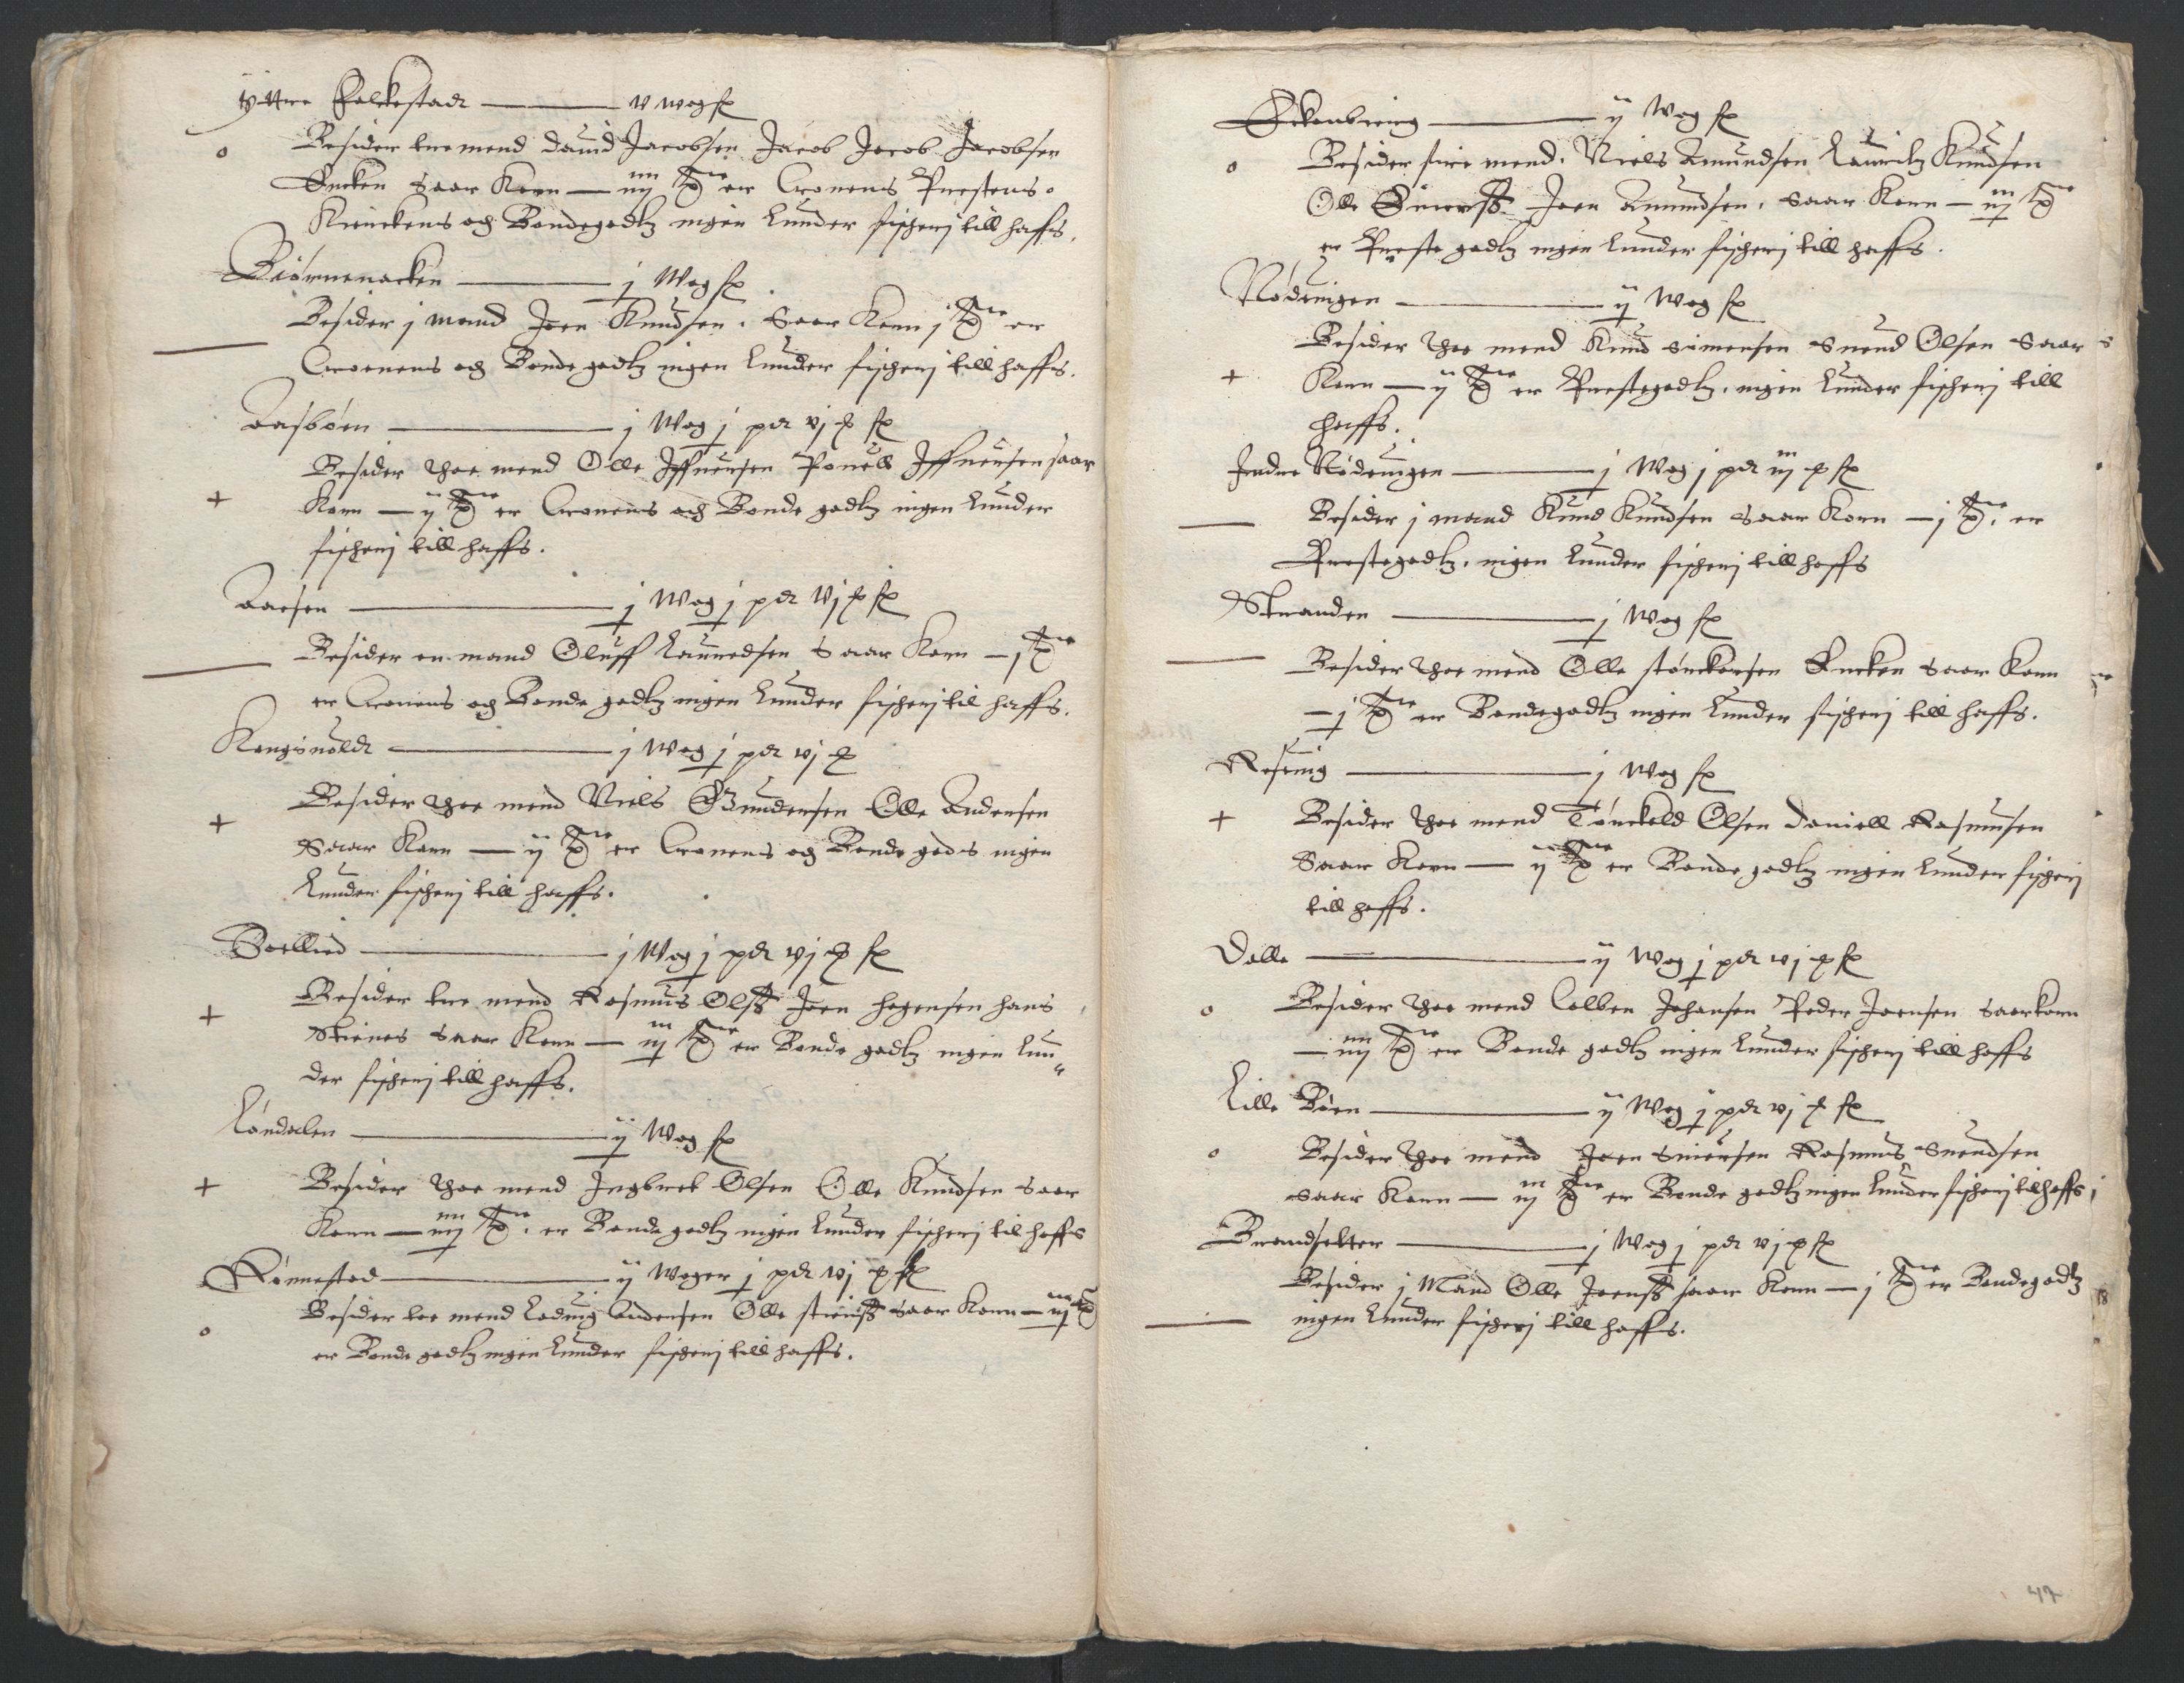 yttre Folkestadt — v wog f
Besider tre mend dauid Jacobsen Jacob Jacob Jacobsen
Encken Saar Korn — iiij tr er Cronens Prestens
Kirckens och Bondegodtz ingen lunder fischerj till haffs.
Biørnenacken — j Wog f
Besider j mand Joen Knudsen. Saar Korn j tr er
Cronens och Bonde godtz ingen lunder fischerj till haffs.
Aasbøen — j Wog j pd vj f
Besider thoe mend Olle Iffuersen Pouell Iffuersen saar
Korn — ij tr er Cronens och Bonde godtz ingen lunder
fischerj till haffs.
Aaesen — j Wog j pd vj f
Besider en mand Oluff Lauredsen Saar Korn — j tr
er Cronens og Bonde godtz ingen lunder fischerj til haffs.
Kongsuoldt — j Wog j pd vj
Besider thoe mend Niels Gundersen Olle Andersen
Saar Korn — ij tr er Cronens og Bonde gods ingen
lunder fischerj till haffs.
Soellied — j Wog j pd vj f
Besider tre mend Rasmus Olss Joen hogensen hans
Skienes saar Korn — iij tr er Bonde godtz ingen lun
der fischerj till haffs.
Løndalen — ij Wog f
Besider thoe mend Ingbret Olsen Olle Knudsen saar
Korn — iiij tr. er Bonde godtz ingen lunder fischerj til haffs
Rønnestad — ij Woger j pd vj f
Besider toe mend Loduig Andersen Olle saar Korn — iiij tr
er Bonde godtz ingen lunder fischerj till haffs.
— ij Wog f
Besider fire mend. Niels Amundsen Lauritz Knudsen
Olle Joen Amundsen. saar Korn — iij tr
er Preste godtz ingen lunder fischerj till haffs.
Nødeuigen — ij Wog f
Besider thoe mend Knud simensen Suend Olsen Saar
Korn — ij tr er Prestegodtz. ingen lunder fischerj till
haffs.
Indre Nødeuigen — j Wog j pd iij f
Besider j mand Knud Knudsen saar Korn — j tr. er
Prestegodtz. ingen lunder fischerj till haffs
Stranden — j Wog f
Besider thoe mend Olle størckersen Encken saar Korn
— j tr er Bondegodtz ingen lunder fischerj till haffs.
Røsuig — j Wog f
Besider thoe mend Tørckeld Olsen Daniell Rasmusen
Saar Korn — ij tr er Bonde godtz ingen lunder fischerj
till haffs.
Dalle — ij Wog j pd vj f
Besider thoe mend Colben Johansen Peder Joensen saar korn
— iiij tr er Bonde godtz ingen lunder fischerj till haffs
Lille Bøen — ij Wog j pd vj f
Besider thoe mend Joen Siuersen Rasmus Suendsen
saar Korn — iij tr er Bonde godtz ingen lunder fischerj til haffs
Brandsetter — j Wog j pd vj f
Besider j Mand Olle Joenss saar Korn — j tr er Bondegodtz
ingen lunder fischerj till haffs.
47